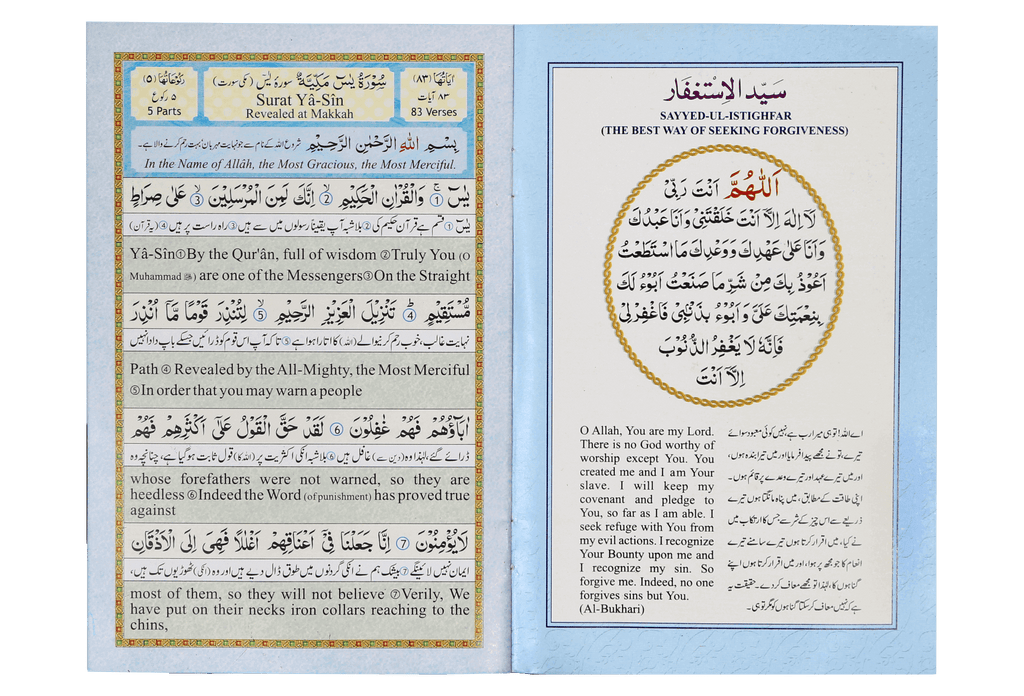 اٰيَاتُهَا (٨٣)
٨٣ آیات
83 Verses
سُوْرَةُ يٰسٓ مَكِّيَّةٌ سورۂ یٰسٓ (مکی سورت)
Surat Yâ-Sîn
Revealed at Makkah
رُكُوْعَاتُهَا (٥)
۵ رکوع
5 Parts
بِسْمِ اللهِ الرَّحْمٰنِ الرَّحِيْمِ شروع اللہ کے نام سے جو نہایت مہربان بہت رحم کرنے والا ہے۔
In the Name of Allâh, the Most Gracious, the Most Merciful.
يٰسٓ ① وَالْقُرْاٰنِ الْحَكِيْمِ ② اِنَّكَ لَمِنَ الْمُرْسَلِيْنَ ③ عَلٰى صِرَاطٍ
یٰسٓ ① قسم ہے قرآن حکیم کی ② بلاشبہ آپ یقیناً رسولوں میں سے ہیں ③ راہ راست پر ہیں ④ (یہ قرآن)
Yâ-Sîn①By the Qur'ân, full of wisdom ②Truly You (O
Muhammad ﷺ) are one of the Messengers③On the Straight
مُّسْتَقِيْمٍ ④ تَنْزِيْلَ الْعَزِيْزِ الرَّحِيْمِ ⑤ لِتُنْذِرَ قَوْمًا مَّاۤ اُنْذِرَ
نہایت غالب، خوب رحم کرنیوالے (اللہ) کا اتارا ہوا ہے ⑤ تاکہ آپ اس قوم کو ڈرائیں جسکے باپ دادا نہیں
Path ④ Revealed by the All-Mighty, the Most Merciful
⑤In order that you may warn a people
اٰبَآؤُهُمْ فَهُمْ غٰفِلُوْنَ ⑥ لَقَدْ حَقَّ الْقَوْلُ عَلٰۤى اَكْثَرِهِمْ فَهُمْ
ڈرائے گئے، لہٰذا وہ (دین سے) غافل ہیں ⑥ بلاشبہ انکی اکثریت پر (اللہ کا) قول ثابت ہوگیا ہے، چنانچہ وہ
whose forefathers were not warned, so they are
heedless ⑥Indeed the Word (of punishment) has proved true
against
لَا يُؤْمِنُوْنَ ⑦ اِنَّا جَعَلْنَا فِيْۤ اَعْنَاقِهِمْ اَغْلٰلًا فَهِيَ اِلَى الْاَذْقَانِ
ایمان نہیں لائینگے ⑦ بیشک ہم نے انکی گردنوں میں طوق ڈال دیے ہیں اور وہ (انکی) ٹھوڑیوں تک ہیں،
most of them, so they will not believe ⑦Verily, We
have put on their necks iron collars reaching to the
chins,
سَيِّدُ الْاِسْتِغْفَار
SAYYED-UL-ISTIGHFAR
(THE BEST WAY OF SEEKING FORGIVENESS)
اَللّٰهُمَّ اَنْتَ رَبِّيْ
لَا اِلٰهَ اِلَّا اَنْتَ خَلَقْتَنِيْ وَاَنَا عَبْدُكَ
وَاَنَا عَلٰى عَهْدِكَ وَوَعْدِكَ مَا اسْتَطَعْتُ
اَعُوْذُ بِكَ مِنْ شَرِّ مَا صَنَعْتُ اَبُوْءُ لَكَ
بِنِعْمَتِكَ عَلَيَّ وَاَبُوْءُ بِذَنْبِيْ فَاغْفِرْ لِيْ
فَاِنَّهٗ لَا يَغْفِرُ الذُّنُوْبَ
اِلَّا اَنْتَ
O Allah, You are my Lord.
There is no God worthy of
worship except You. You
created me and I am Your
slave. I will keep my
covenant and pledge to
You, so far as I am able. I
seek refuge with You from
my evil actions. I recognize
Your Bounty upon me and
I recognize my sin. So
forgive me. Indeed, no one
forgives sins but You.
(Al-Bukhari)
اے اللہ! تو ہی میرا رب ہے، نہیں کوئی معبود سوائے
تیرے، تو نے مجھے پیدا فرمایا اور میں تیرا بندہ ہوں،
اور میں تیرے عہد اور تیرے وعدے پر قائم ہوں۔
اپنی طاقت کے مطابق، میں پناہ مانگتا ہوں تیرے
ذریعے سے اس چیز کے شر سے جس کا ارتکاب میں
نے کیا، میں اقرار کرتا ہوں تیرے سامنے تیرے
انعام کا جو مجھ پر ہوا، اور میں اقرار کرتا ہوں اپنے
گناہوں کا، لہٰذا تو مجھے معاف کردے۔ حقیقت یہ
ہے کہ نہیں معاف کرسکتا گناہوں کو مگر تو ہی۔